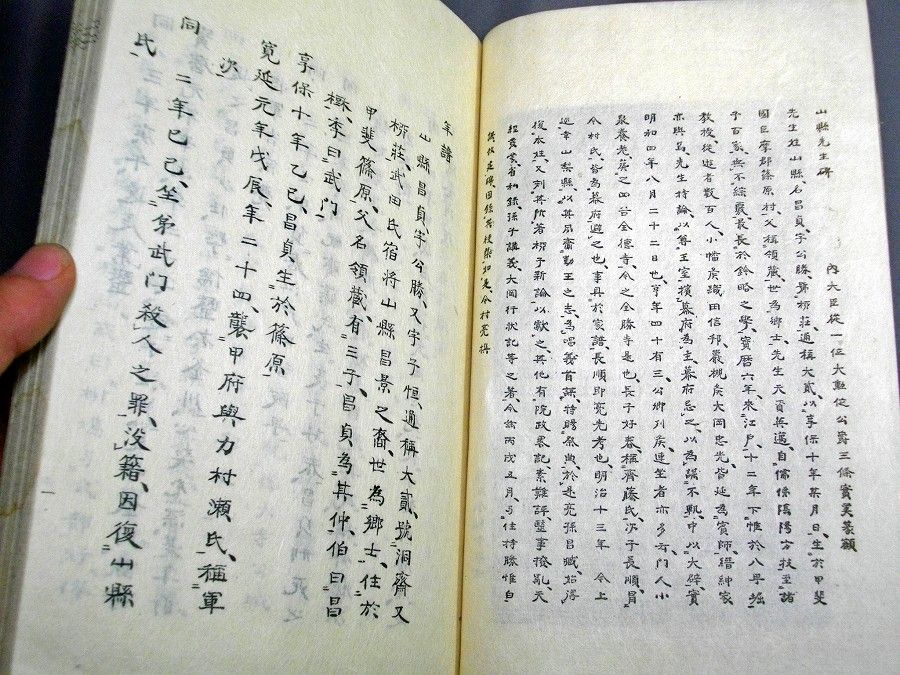 山縣先生碑　內大臣從一位大勲位公爵三條實美篆額
先生姓山縣名昌貞字公勝號柳莊通稱大貳以享保十年某月日生於甲斐
國巨摩郡篠原村父稱領藏世為鄉士先生天資英邁自儒佛陰陽方技至諸
子百家無不綜覈最長於鈐略之學寶曆六年來江戶十二年下帷於八甼堀
教授從遊者數百人小幡侯織田信邦巖槻侯大岡忠光皆延為賓師搢紳家
亦與焉先生持論以尊王室擯幕府為主幕府忌之以為謀不軌中以大辟實
明和四年八月二十二日也享年四十有三公卿列侯連坐者亦多云門人小
泉養老葬之四谷全德寺今之全勝寺是也長子好春稱齋藤氏次子長順冒
今村氏皆為幕府避之也事具於家譜長順即亮先考也明治十三年　今上
巡幸山梨縣以其夙齋勤王之志為唱義首謀特賜祭典於是亮孫昌臧始復
復本姓又列其所著柳子新論以獻之其他有院政畧記素難評醫事撥亂天
經發蒙有
孫子講義大岡行狀記等之著今玆丙戌五月
年譜
山縣昌貞字公勝又字子恒通稱大貳號洞齋又
柳莊武田氏宿將山縣昌景之裔世為鄉士住於
甲斐篠原父名領藏有三子昌貞為其仲伯曰昌
樹季曰武門
享保十年乙巳昌貞生於篠原
寬延元年戊辰年二十四襲甲府與力村瀨氏稱軍
次
同　二年己巳坐弟武门殺人之罪沒籍因復山縣
氏
一